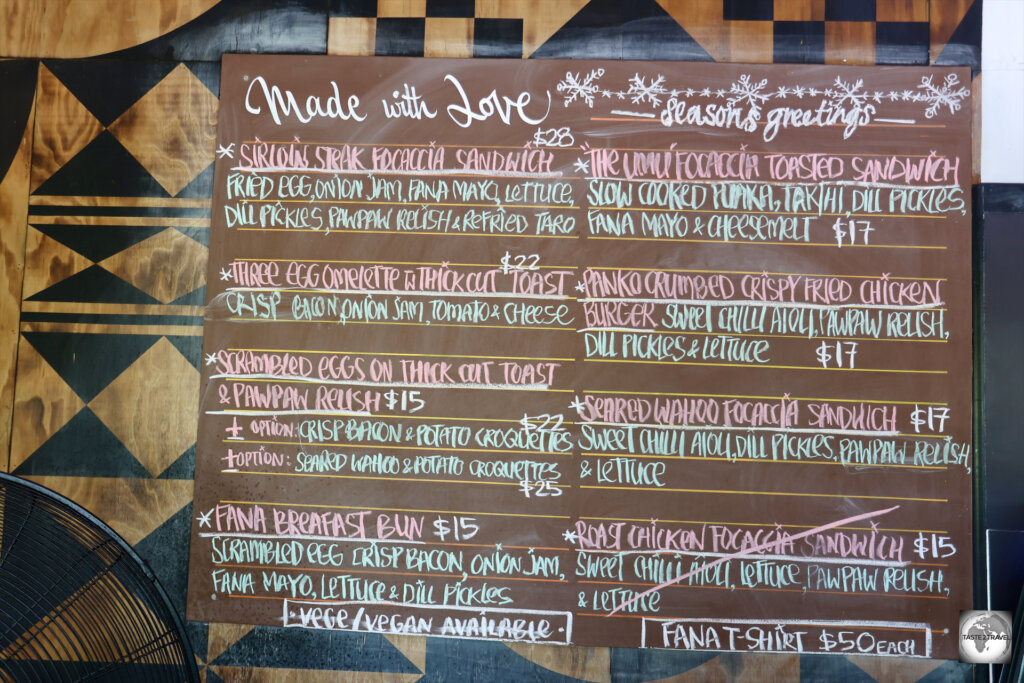 Made with Love
$28
* SIRLOIN STEAK FOCACCIA SANDWICH
FRIED EGG, ONION JAM, FANA MAYO, LETTUCE,
DILL PICKLES, PAWPAW RELISH & REFRIED TARO
$22
* THREE EGG OMELETTE W THICK CUT TOAST
CRISP BACON, ONION JAM, TOMATO & CHEESE
* SCRAMBLED EGGS ON THICK CUT TOAST
& PAWPAW RELISH $15
$22
+ OPTION: CRISP BACON & POTATO CROQUETTES
+ OPTION: SEARED WAHOO & POTATO CROQUETTES
$25
* FANA BREAFAST BUN $15
SCRAMBLED EGG CRISP BACON, ONION JAM,
FANA MAYO, LETTUCE & DILL PICKLES
· VEGE/VEGAN AVAILABLE ·
SEASONS GREETINGS
* THE UMU FOCACCIA TOASTED SANDWICH
SLOW COOKED PUAKA, TAKIHI, DILL PICKLES,
FANA MAYO & CHEESEMELT $17
* PANKO CRUMBED CRISPY FRIED CHICKEN
BURGER SWEET CHILLI AIOLI, PAWPAW RELISH,
DILL PICKLES & LETTUCE $17
* SEARED WAHOO FOCACCIA SANDWICH $17
SWEET CHILLI AIOLI, DILL PICKLES, PAWPAW RELISH,
& LETTUCE
* ROAST CHICKEN FOCACCIA SANDWICH $15
SWEET CHILLI AIOLI, LETTUCE, PAWPAW RELISH,
& LETTUCE
FANA T-SHIRT $50 EACH
TASTE2TRAVEL